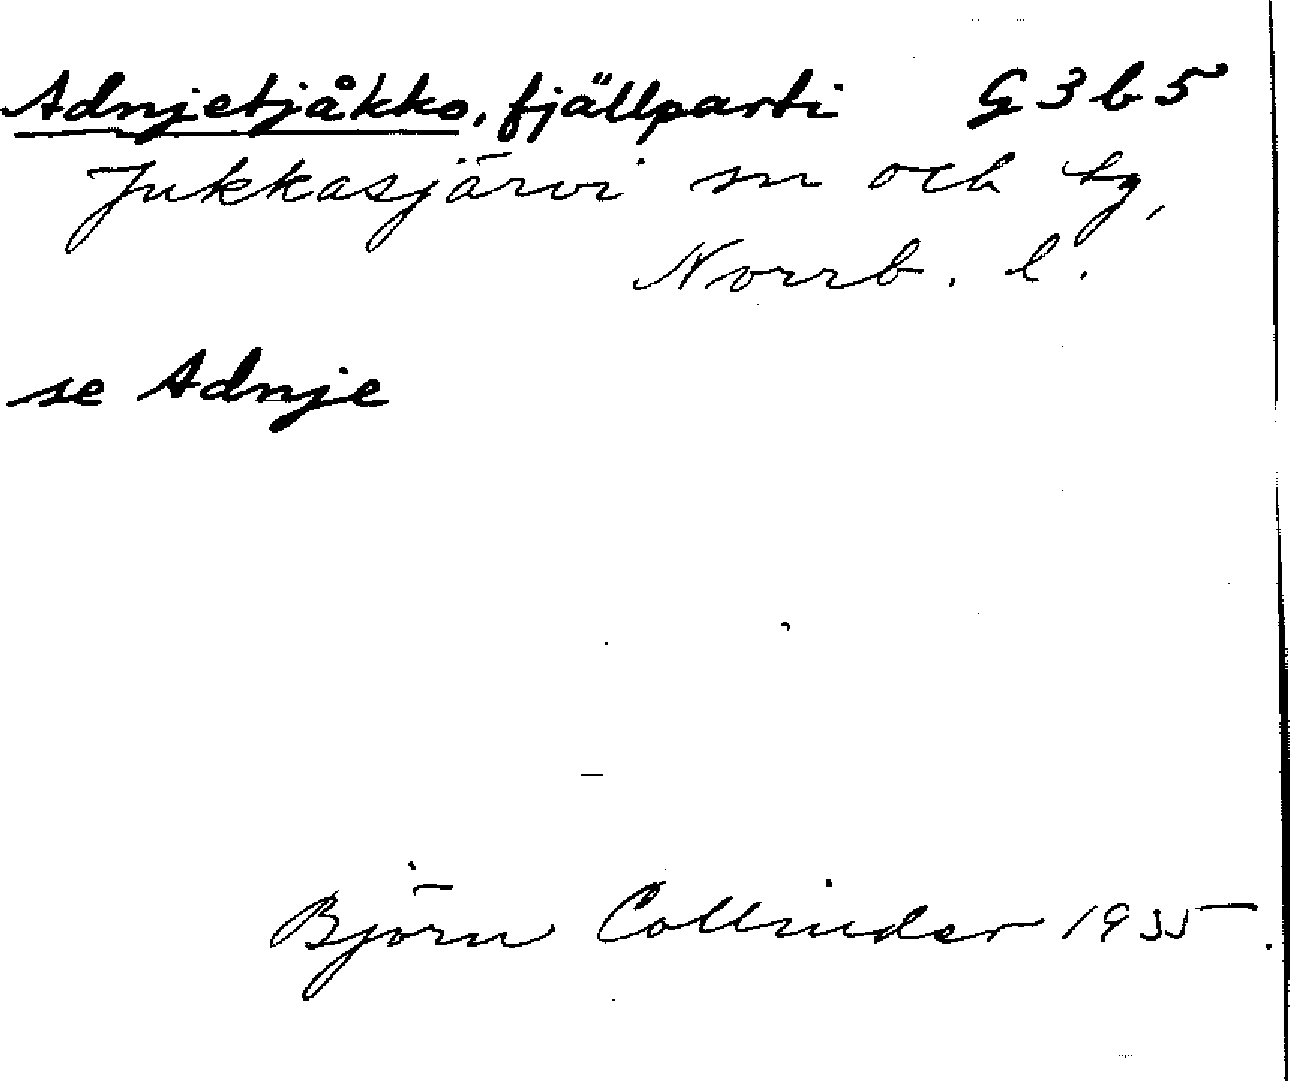 Adnjetjåkko, fjällparti G3b5
Jukkasjärvi sn och tg,
Norrb. l.
se Adnje
Björn Collinder 1935.